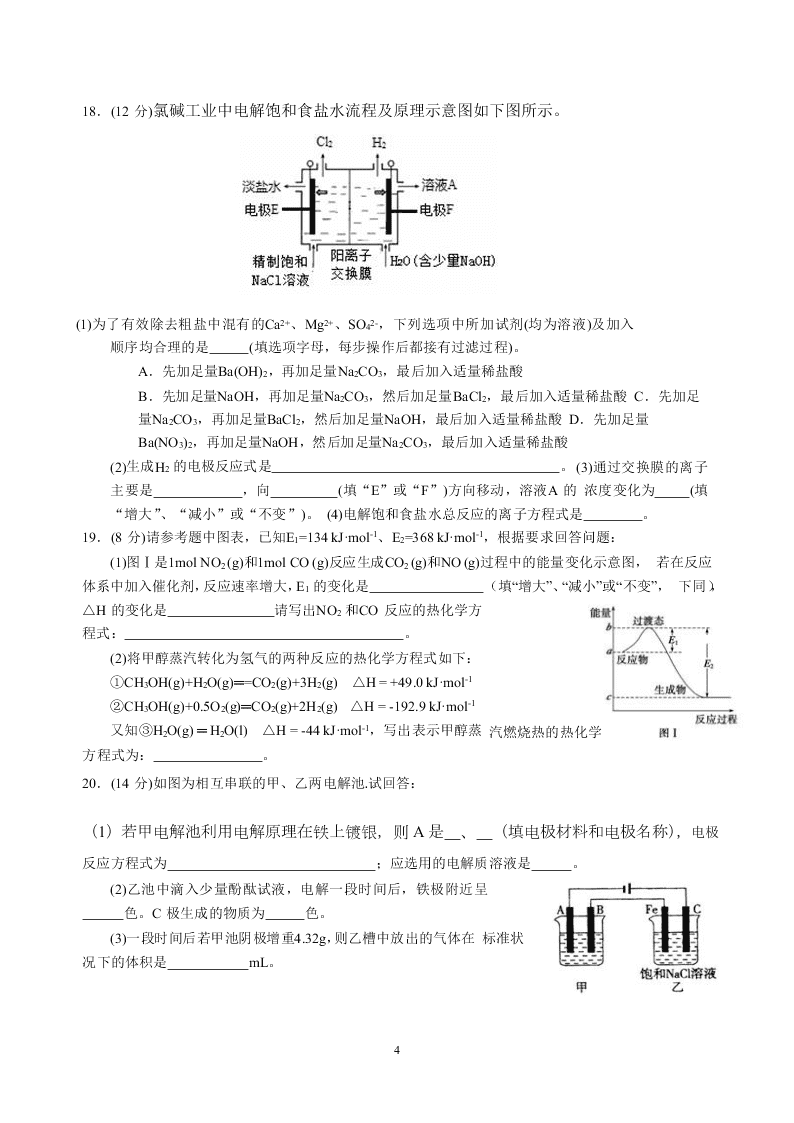 18．(12 分)氯碱工业中电解饱和食盐水流程及原理示意图如下图所示。
Cl₂ H₂
淡盐水 溶液A
电极E 电极F
精制饱和 阳离子 H₂O(含少量NaOH)
NaCl溶液 交换膜
(1)为了有效除去粗盐中混有的Ca²⁺、Mg²⁺、SO₄²⁻，下列选项中所加试剂(均为溶液)及加入
顺序均合理的是_____(填选项字母，每步操作后都接有过滤过程)。
A．先加足量Ba(OH)₂，再加足量Na₂CO₃，最后加入适量稀盐酸
B．先加足量NaOH，再加足量Na₂CO₃，然后加足量BaCl₂，最后加入适量稀盐酸 C．先加足
量Na₂CO₃，再加足量BaCl₂，然后加足量NaOH，最后加入适量稀盐酸 D．先加足量
Ba(NO₃)₂，再加足量NaOH，然后加足量Na₂CO₃，最后加入适量稀盐酸
(2)生成H₂ 的电极反应式是____________________。(3)通过交换膜的离子
主要是__________，向________(填“E”或“F”)方向移动，溶液A 的 浓度变化为_____(填
“增大”、“减小”或“不变”)。 (4)电解饱和食盐水总反应的离子方程式是________。
19．(8 分)请参考题中图表，已知E₁=134 kJ·mol⁻¹、E₂=368 kJ·mol⁻¹，根据要求回答问题：
(1)图Ⅰ是1mol NO₂ (g)和1mol CO (g)反应生成CO₂ (g)和NO (g)过程中的能量变化示意图， 若在反应
体系中加入催化剂,反应速率增大,E₁ 的变化是______________（填“增大”、“减小”或“不变”， 下同）
△H 的变化是____________ 请写出NO₂ 和CO 反应的热化学方
程式：____________________。
(2)将甲醇蒸汽转化为氢气的两种反应的热化学方程式如下：
①CH₃OH(g)+H₂O(g)═=CO₂(g)+3H₂(g) △H = +49.0 kJ·mol⁻¹
②CH₃OH(g)+0.5O₂(g)═CO₂(g)+2H₂(g) △H = -192.9 kJ·mol⁻¹
又知③H₂O(g) ═ H₂O(l) △H = -44 kJ·mol⁻¹，写出表示甲醇蒸 汽燃烧热的热化学
方程式为：______________。
能量
b 过渡态
E₁
a 反应物
E₂
生成物
c
反应过程
图Ⅰ
20．(14 分)如图为相互串联的甲、乙两电解池.试回答：
（1）若甲电解池利用电解原理在铁上镀银，则 A 是__、__（填电极材料和电极名称），电极
反应方程式为____________________；应选用的电解质溶液是______。
(2)乙池中滴入少量酚酞试液，电解一段时间后，铁极附近呈
______色。C 极生成的物质为_____色。
(3)一段时间后若甲池阴极增重4.32g，则乙槽中放出的气体在 标准状
况下的体积是__________mL。
A B Fe C
饱和NaCl溶液
甲 乙
4